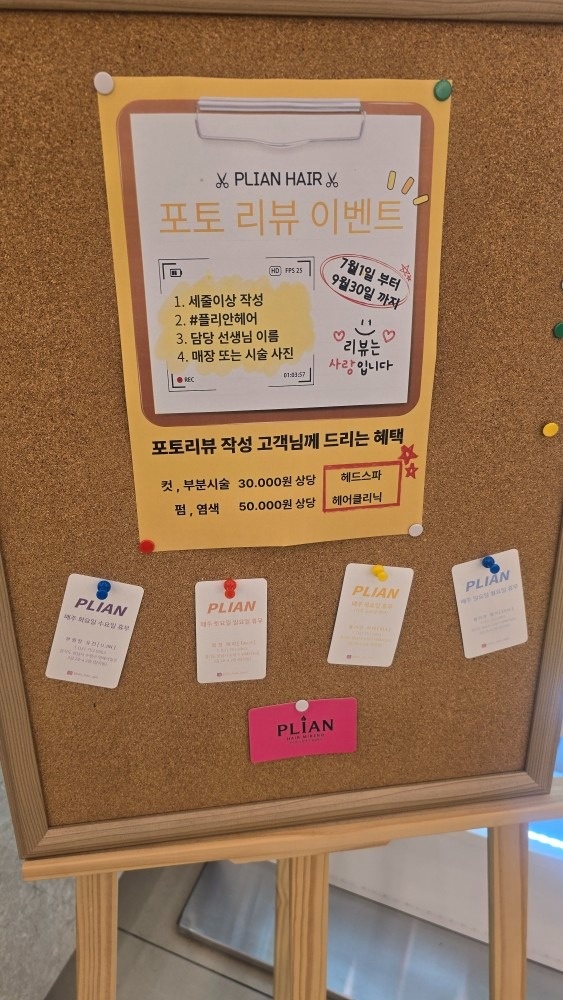 PLIAN HAIR
포토 리뷰 이벤트
HD FPS 25
7월1일 부터
9월30일 까지
1. 세줄이상 작성
2. #플리안헤어
3. 담당 선생님 이름
4. 매장 또는 시술 사진
REC
01:03:57
리뷰는
사랑입니다
포토리뷰 작성 고객님께 드리는 혜택
컷 , 부분시술 30.000원 상당 헤드스파
펌 , 염색 50.000원 상당 헤어클리닉
PLIAN
매주 화요일 수요일 휴무
PLIAN
PLIAN
PLIAN
PLIAN